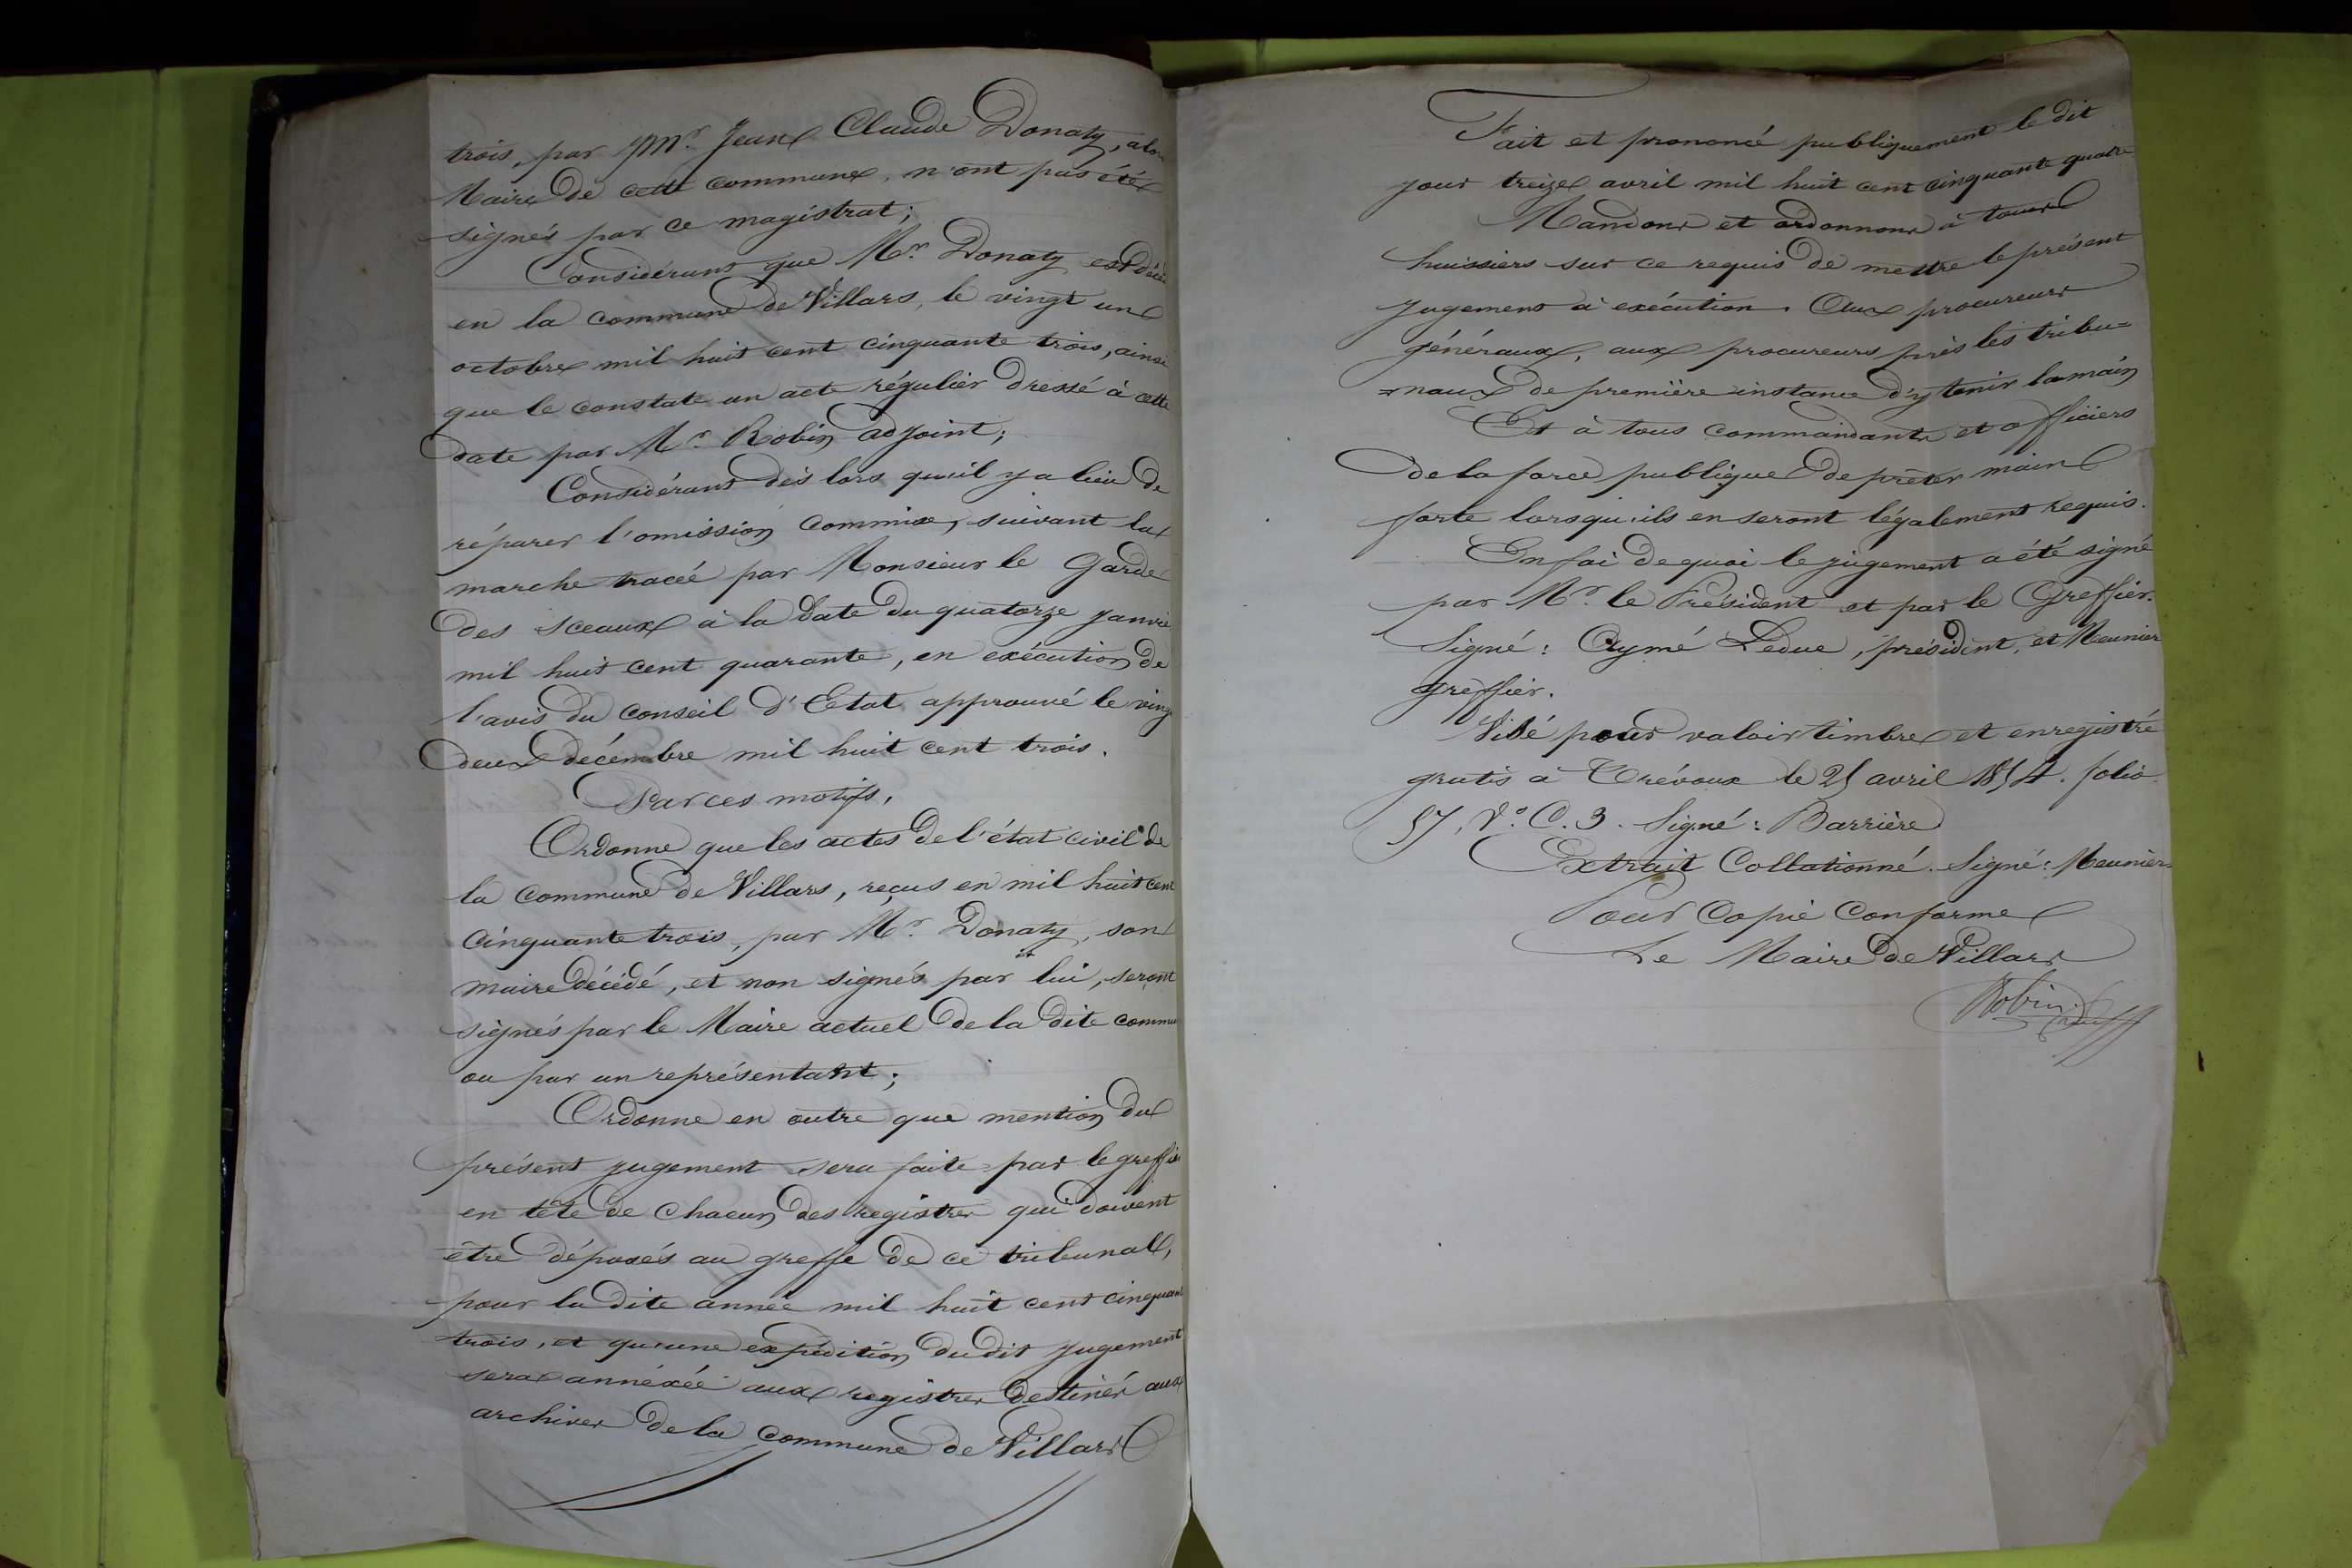 trois, par Mr. Jean Claude Donaty, alors
Maire de cette commune, n'ont pas été
signés par ce magistrat;
Considérant que Mr. Donaty est décé
en la commune de Villars, le vingt un
octobre mil huit cent cinquante trois, ainsi
que le constate un acte régulier dressé à cette
date par Mr. Robin adjoint;
Considérant dès lors qu'il y a lieu de
réparer l'omission commise, suivant la
marche tracée par Monsieur le Garde
des sceaux à la date du quatorze janvie
mil huit cent quarante, en exécution de
l'avis du conseil d'Etat approuvé le ving
deux décembre mil huit cent trois.
Par ces motifs,
Ordonne que les actes de l'état civil de
la commune de Villars, reçus en mil huit cent
cinquante trois, par Mr. Donaty, son
maire décédé, et non signés par lui, seront
signés par le Maire actuel de la dite commu
ou par un représentant;
Ordonne en outre que mention du
présent jugement sera faite par le greffie
en tête de chacun des registres qui doivent
être déposés au greffe de ce tribunal,
pour la dite année mil huit cent cinquant
trois, et qu'une expédition du dit jugement
sera annéxée aux registres destinés aux
archives de la commune de Villars
Fait et prononcé publiquement le dit
jour treize avril mil huit cent cinquante quatre
Mandons et ordonnons à tous
huissiers sur ce requis de mettre le présent
jugement à exécution. Aux procureurs
généraux, aux procureurs près les tribu=
=naux de première instance d'y tenir la main
Et à tous commandants et officiers
de la force publique de prêter main
forte lorsqu'ils en seront légalement requis.
En foi de quoi le jugement a été signé
par Mr. le Président et par le Greffier.
Signé: Aymé Leduc, président, et Meunier
greffier.
Visé pour valoir timbre et enregistré
gratis à Trévoux le 25 avril 1854. folio
57, Vo. C. 3. Signé: Barrière
Extrait Collationné. Signé: Meunier
Pour Copie Conforme
Le Maire de Villars
Robin